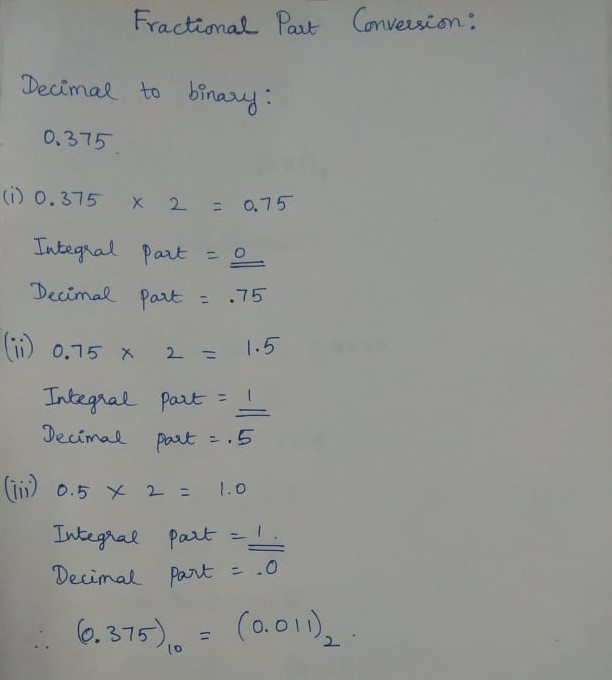 Fractional Part Conversion:
Decimal to binary:
0.375
(i) 0.375 x 2 = 0.75
Integral part = 0
Decimal part = .75
(ii) 0.75 x 2 = 1.5
Integral part = 1
Decimal part = .5
(iii) 0.5 x 2 = 1.0
Integral part = 1.
Decimal part = .0
∴ (0.375)₁₀ = (0.011)₂.